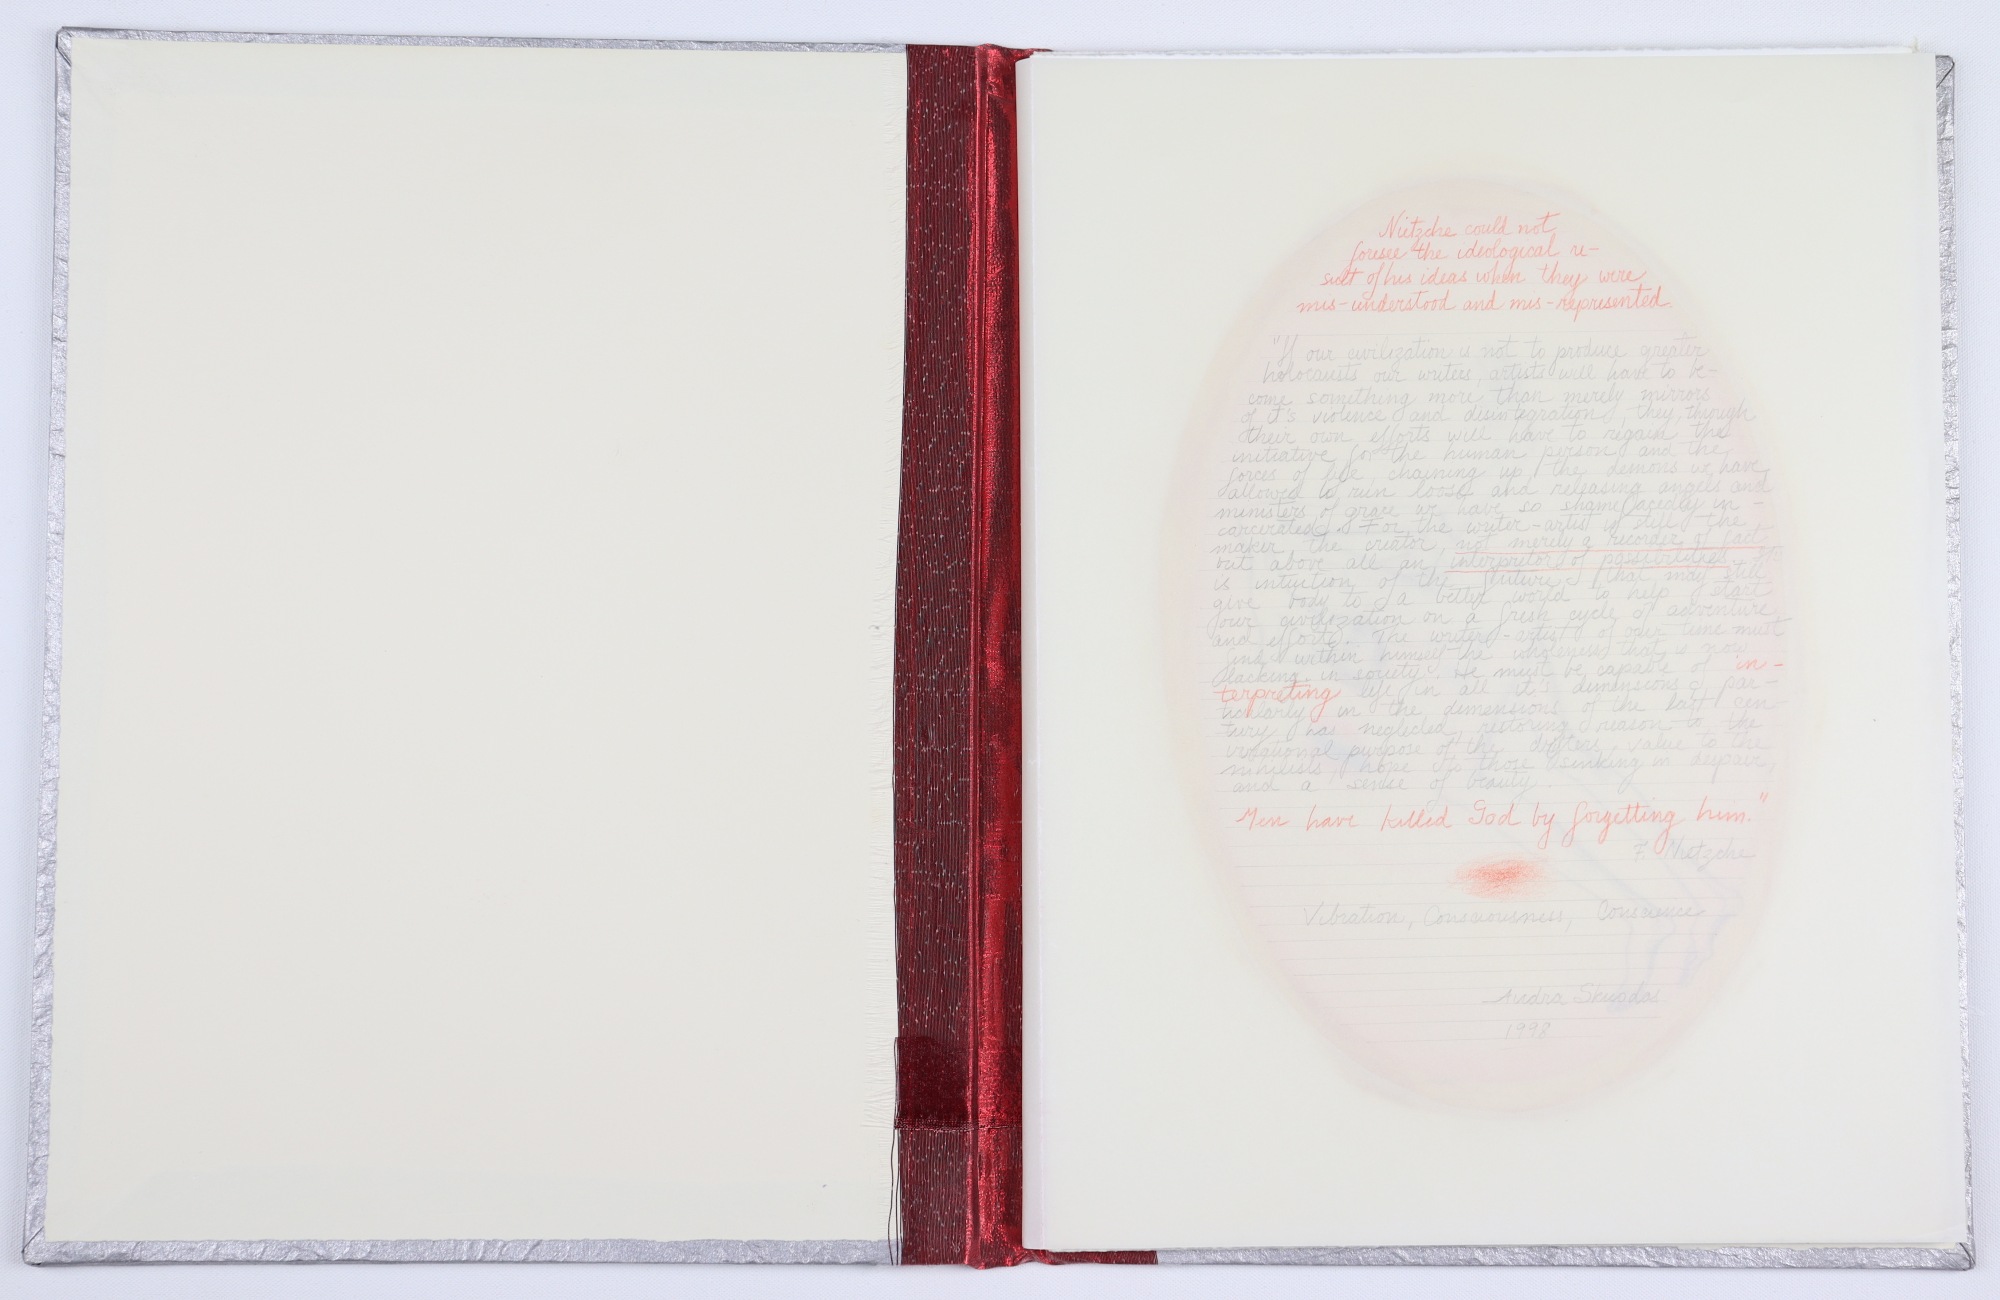 Nietzche could not
foresee the ideological re-
sult of his ideas when they were
mis-understood and mis-represented.
"If our civilization is not to produce greater
holocausts our writers, artists will have to be-
come something more than merely mirrors
of it's violence and disintegration, they, through
their own efforts will have to regain the
initiative for the human person and the
forces of life, chaining up the demons we have
allowed to run loose and releasing angels and
ministers of grace we have so shamefacedly in-
carcerated. For the writer-artist is still the
maker, the creator, not merely a recorder of fact
but above all an interpretor of possibilities. His
is intuition of the future, that may still
give body to a better world to help start
our civilization on a fresh cycle of adventure
and effort. The writer-artist of our time must
find within himself the wholeness that is now
lacking in society. He must be capable of in-
terpreting life in all it's dimensions, par-
ticularly in the dimensions of the last cen-
tury has neglected, restoring reason to the
purpose of the drifters, value to the
nihilists, hope to those sinking in despair,
and a sense of beauty.
Men have killed God by forgetting him."
F. Nietzche
Vibration, Consciousness, Conscience
Audra Skuodas
1998